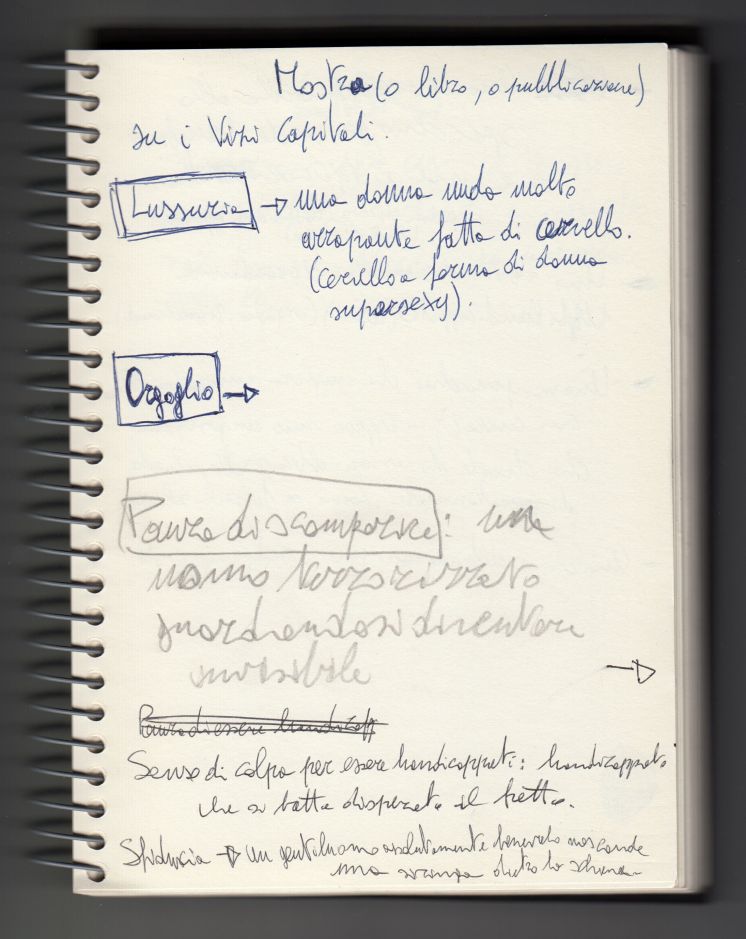 Mostra (o libro, o pubblicazione)
su i Vizi Capitali.
Lussuria → una donna nuda molto
arrapante fatta di cervello.
(cervello a forma di donna
supersexy).
Orgoglio →
Paura di scomparire: un
uomo terrorizzato
guardandosi diventare
invisibile
→
Paura di essere handicapp
Senso di colpa per essere handicappati: handicappato
che si batte disperato il petto.
Sfiducia → un gentiluomo assolutamente benevolo nasconde
una dietro la schiena